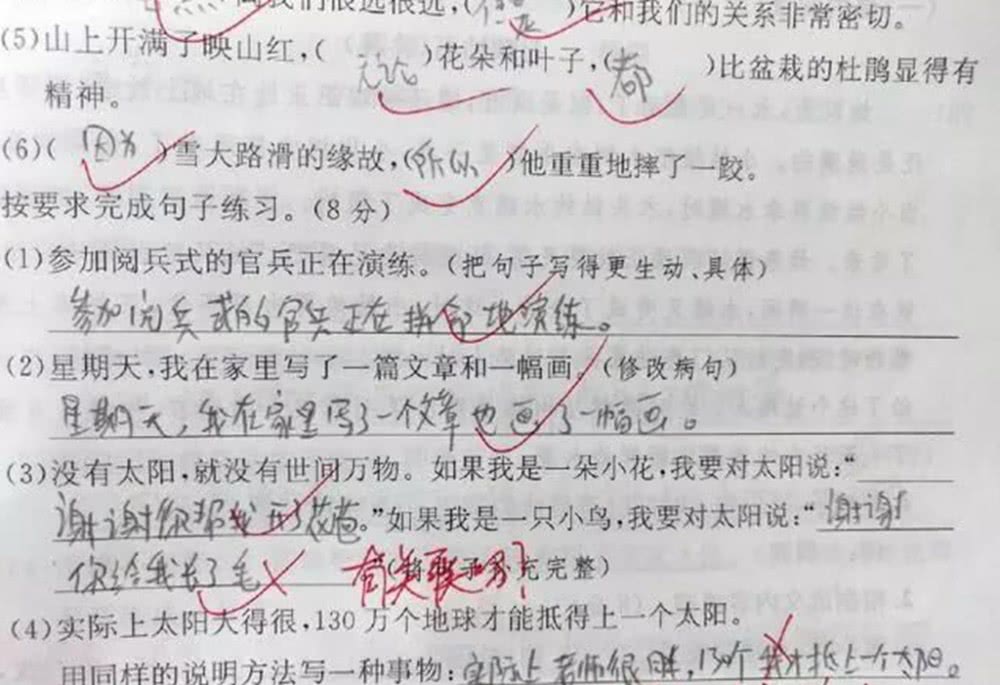 向我们很远很远,( )它和我们的关系非常密切。
(5)山上开满了映山红,(无论)花朵和叶子,(都)比盆栽的杜鹃显得有
精神。
(6)(因为)雪大路滑的缘故,(所以)他重重地摔了一跤。
按要求完成句子练习。(8分)
(1)参加阅兵式的官兵正在演练。(把句子写得更生动、具体)
参加阅兵式的官兵正在拼命地演练。
(2)星期天,我在家里写了一篇文章和一幅画。(修改病句)
星期天,我在家里写了一个文章也画了一幅画。
(3)没有太阳,就没有世间万物。如果我是一朵小花,我要对太阳说:“
谢谢你帮我开了花苞。”如果我是一只小鸟,我要对太阳说:“谢谢
你给我长了毛 有关联吗? 充完整)
(4)实际上太阳大得很,130万个地球才能抵得上一个太阳。
用同样的说明方法写一种事物:实际上老师很胖,130个我才抵上一个太阳。